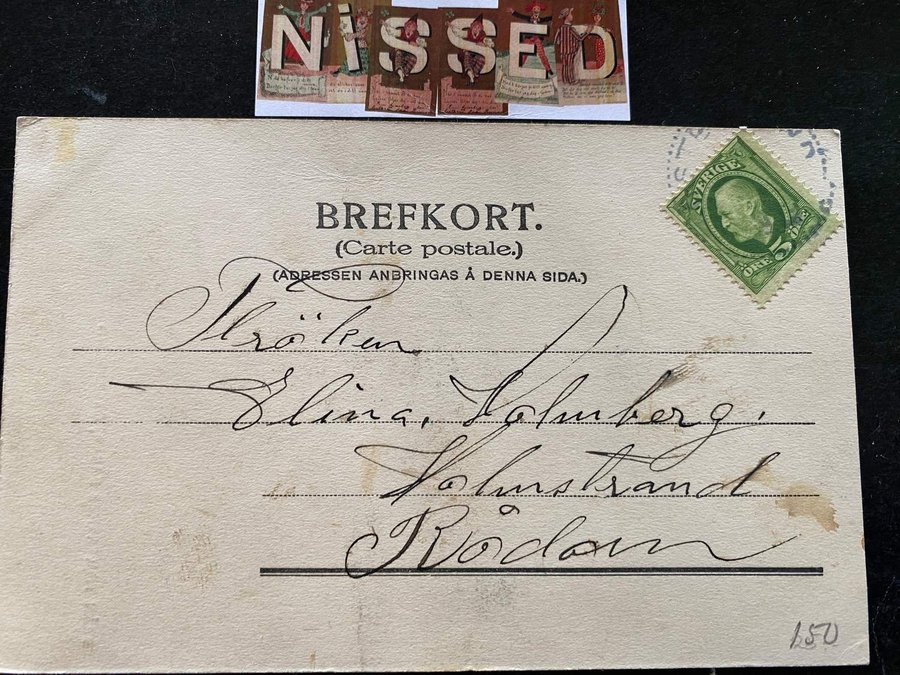 NISSED
BREFKORT.
(Carte postale.)
(ADRESSEN ANBRINGAS Å DENNA SIDA.)
SVERIGE
ÖRE 5 ÖRE
Fröken
Elina, Holmberg.
Holmstrand
Rådom
150